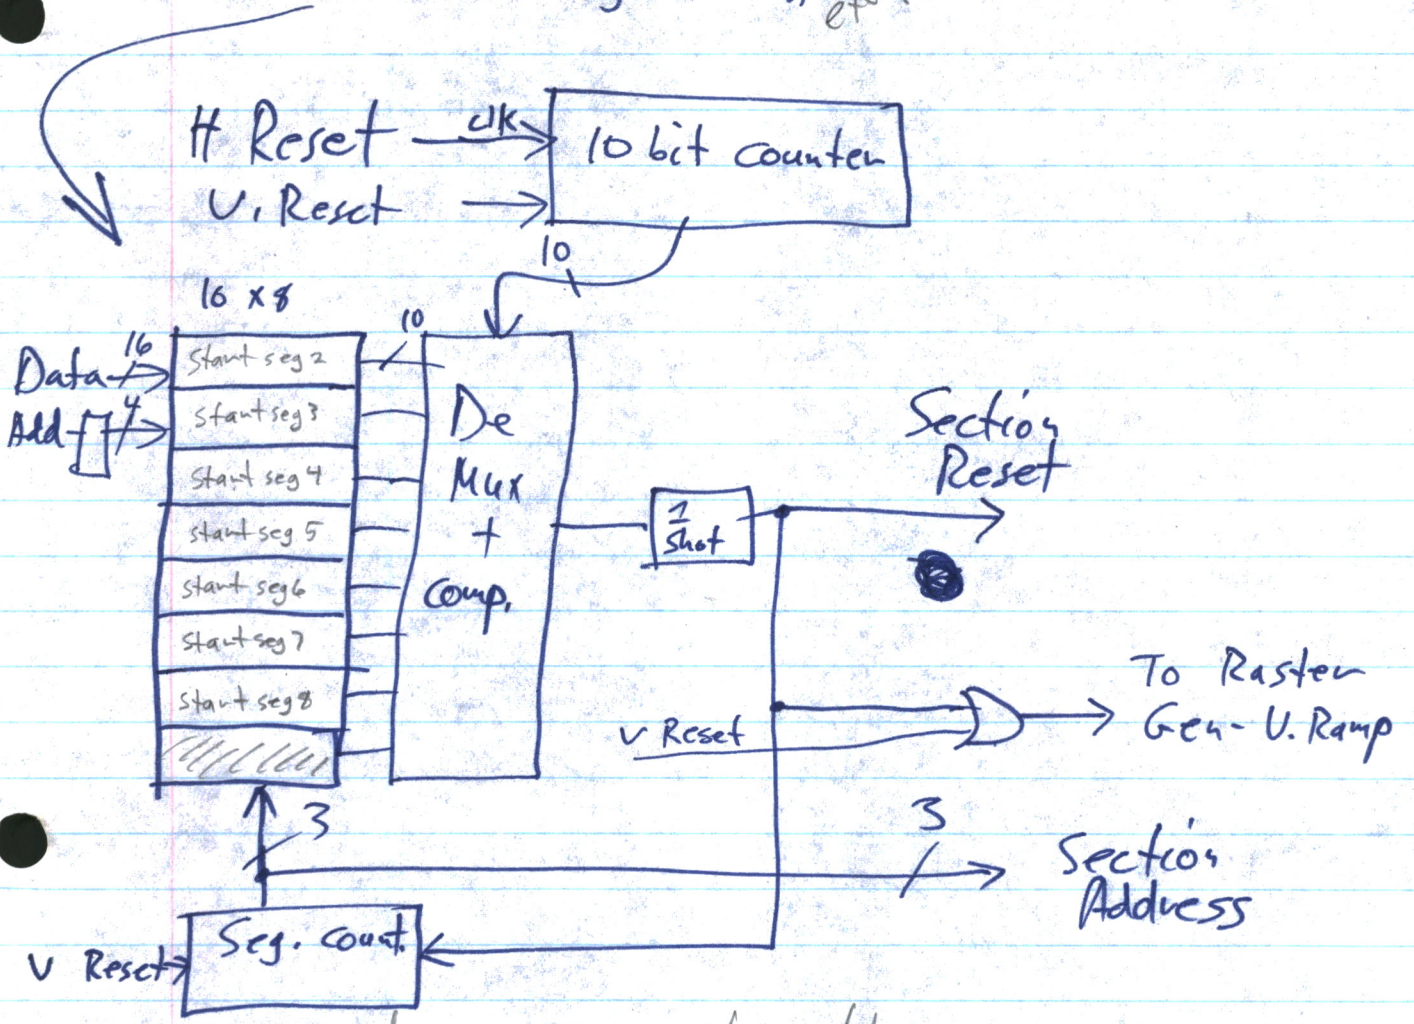 et
H Reset clk 10 bit counter
V. Reset
10
16 x 8
10
Data 16
Add 4
Start seg 2
Start seg 3
Start seg 4
Start seg 5
Start seg 6
Start seg 7
Start seg 8
De
Mux
+
Comp.
1
shot
Section
Reset
V Reset
To Raster
Gen- V. Ramp
3
3
Section
Address
V Reset
Seg. count.